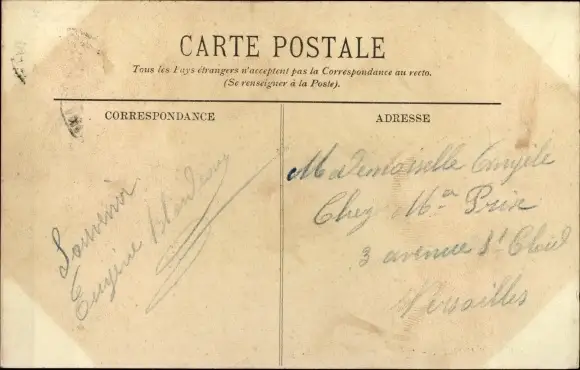 CARTE POSTALE
Tous les Pays étrangers n'acceptent pas la Correspondance au recto.
(Se renseigner à la Poste).
CORRESPONDANCE
Souvenir
Eugène
ADRESSE
Mademoiselle
Chez Mᵐᵉ Prix
3 avenue St Cloud
Versailles